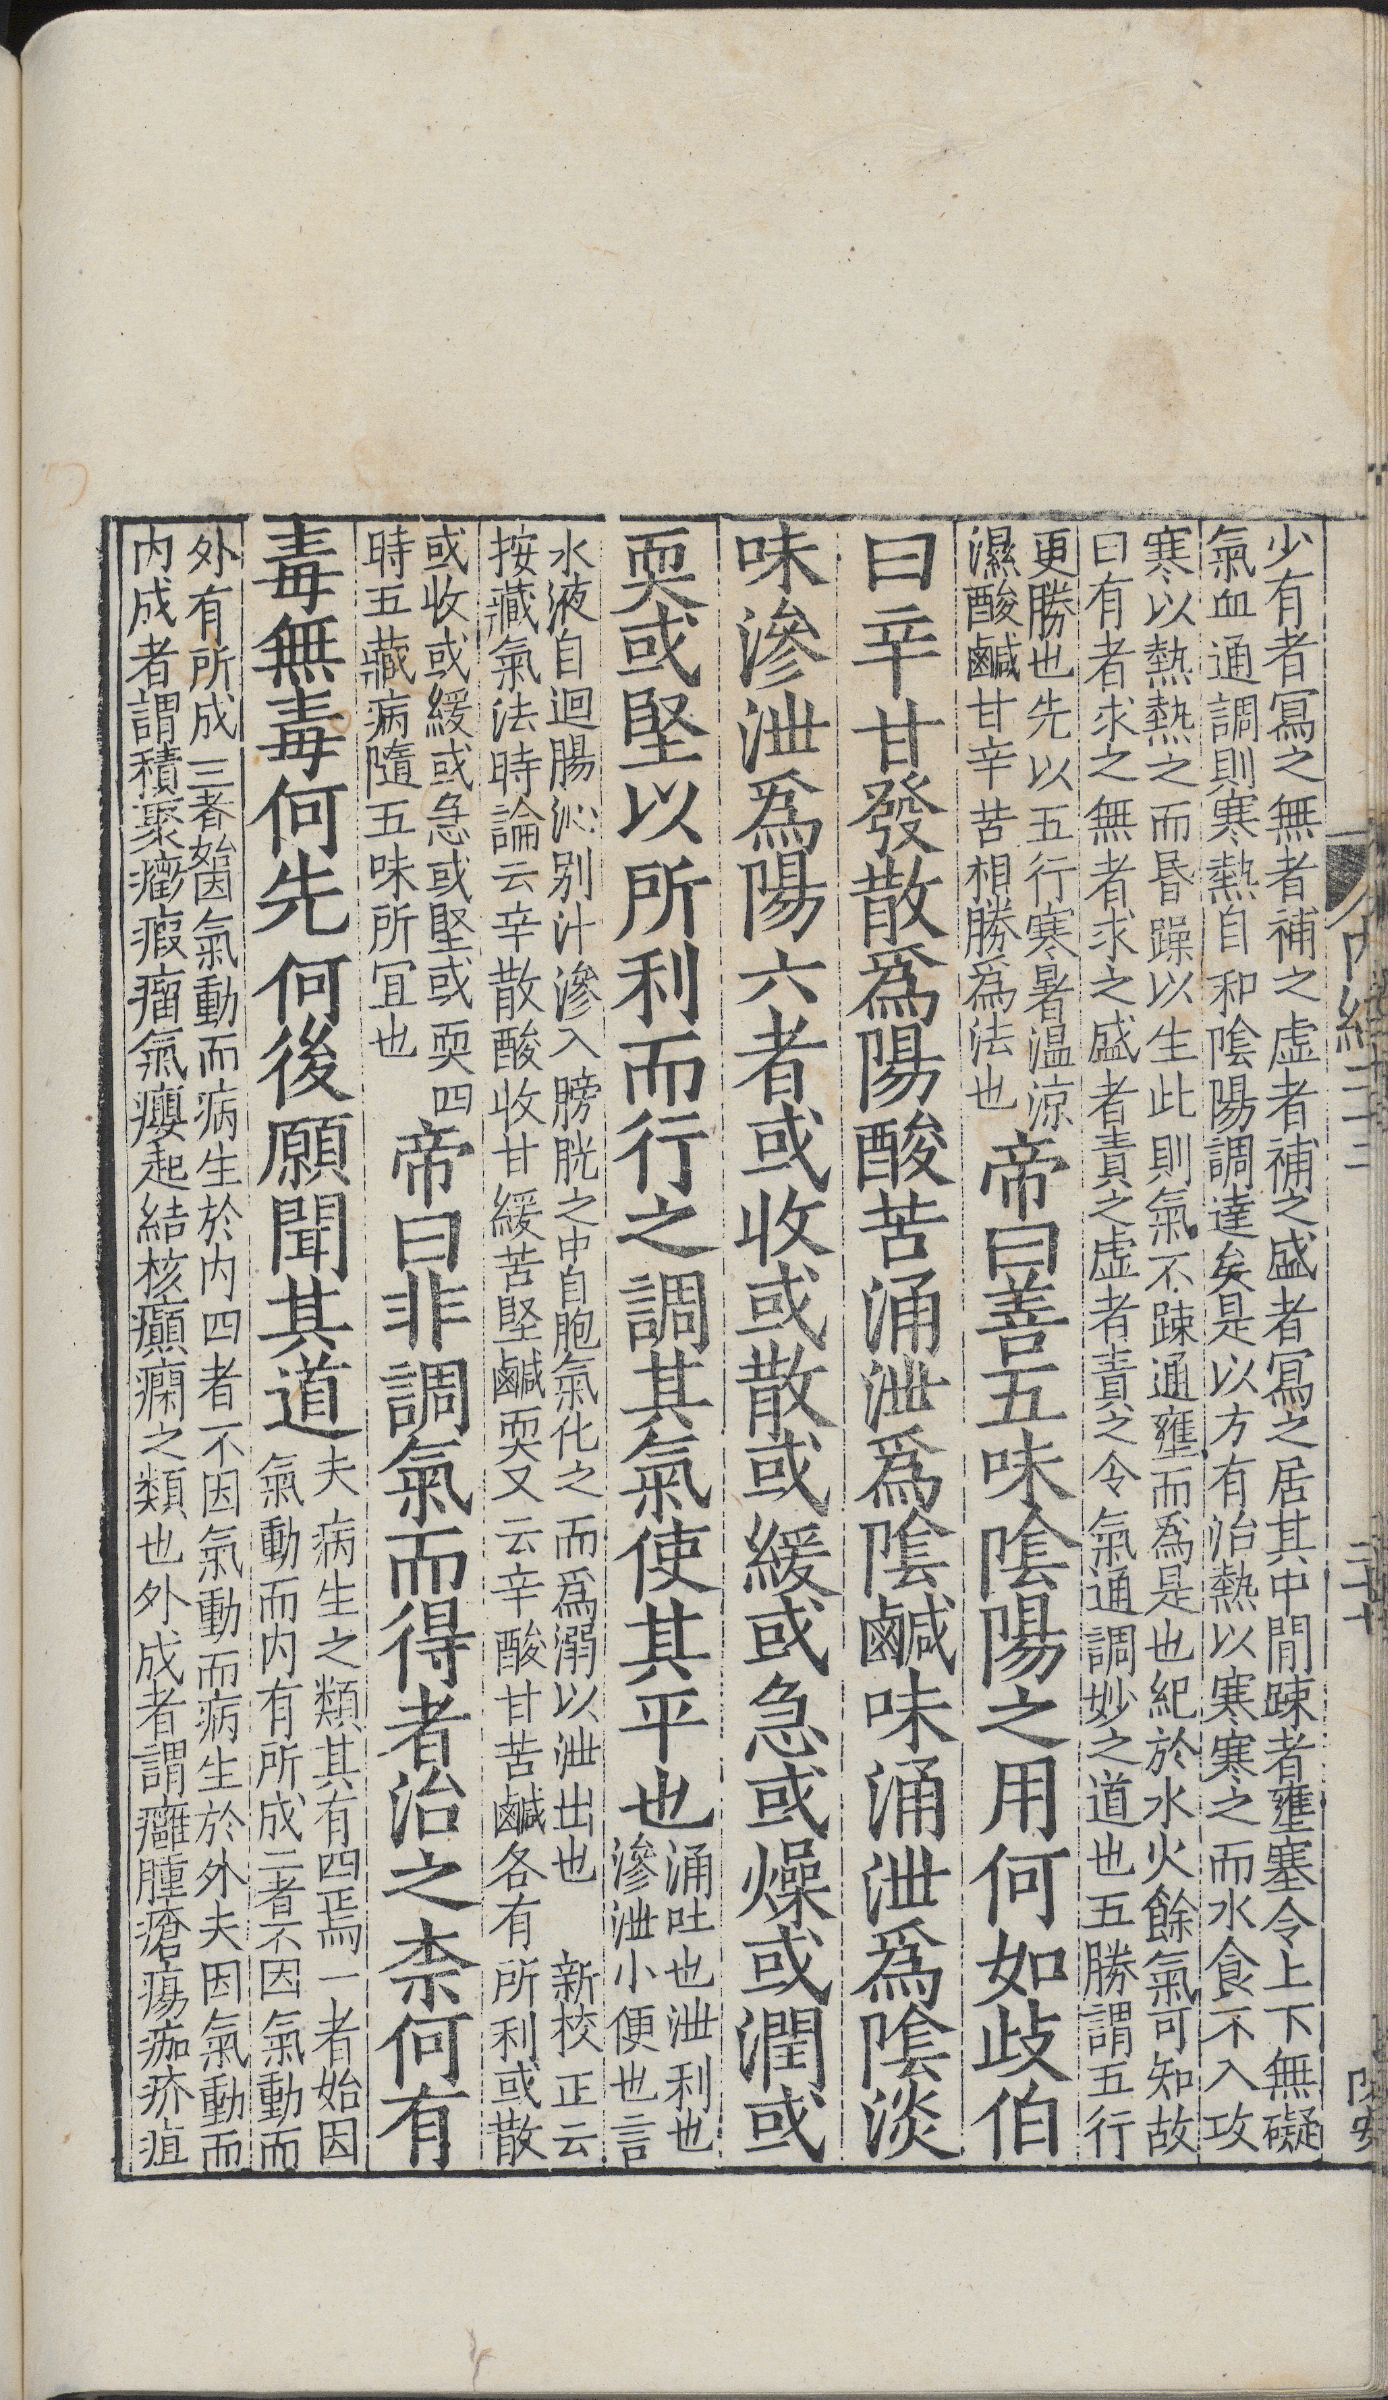 少有者寫之無者補之虛者補之盛者寫之居其中閒踈者壅塞令上下無礙
氣血通調則寒熱自和陰陽調達矣是以方有治熱以寒寒之而水食不入攻
寒以熱熱之而昬躁以生此則氣不踈通壅而爲是也紀於水火餘氣可知故
曰有者求之無者求之盛者責之虛者責之令氣通調妙之道也五勝謂五行
更勝也先以五行寒暑温涼
濕酸鹹甘辛苦相勝爲法也
帝曰善五味陰陽之用何如歧伯
曰辛甘發散爲陽酸苦涌泄爲陰鹹味涌泄爲陰淡
味滲泄爲陽六者或收或散或緩或急或燥或潤或
耎或堅以所利而行之調其氣使其平也
涌吐也泄利也
滲泄小便也言
水液自迴腸沁別汁滲入膀胱之中自胞氣化之而爲溺以泄出也 新校正云
按藏氣法時論云辛散酸收甘緩苦堅鹹耎又云辛酸甘苦鹹各有所利或散
或收或緩或急或堅或耎四
時五藏病隨五味所宜也
帝曰非調氣而得者治之柰何有
毒無毒何先何後願聞其道
夫病生之類其有四焉一者始因
氣動而內有所成二者不因氣動而
外有所成三者始因氣動而病生於內四者不因氣動而病生於外夫因氣動而
內成者謂積聚癥瘕瘤氣癭起結核癲癇之類也外成者謂癰腫瘡瘍痂疥疽
內經二十二